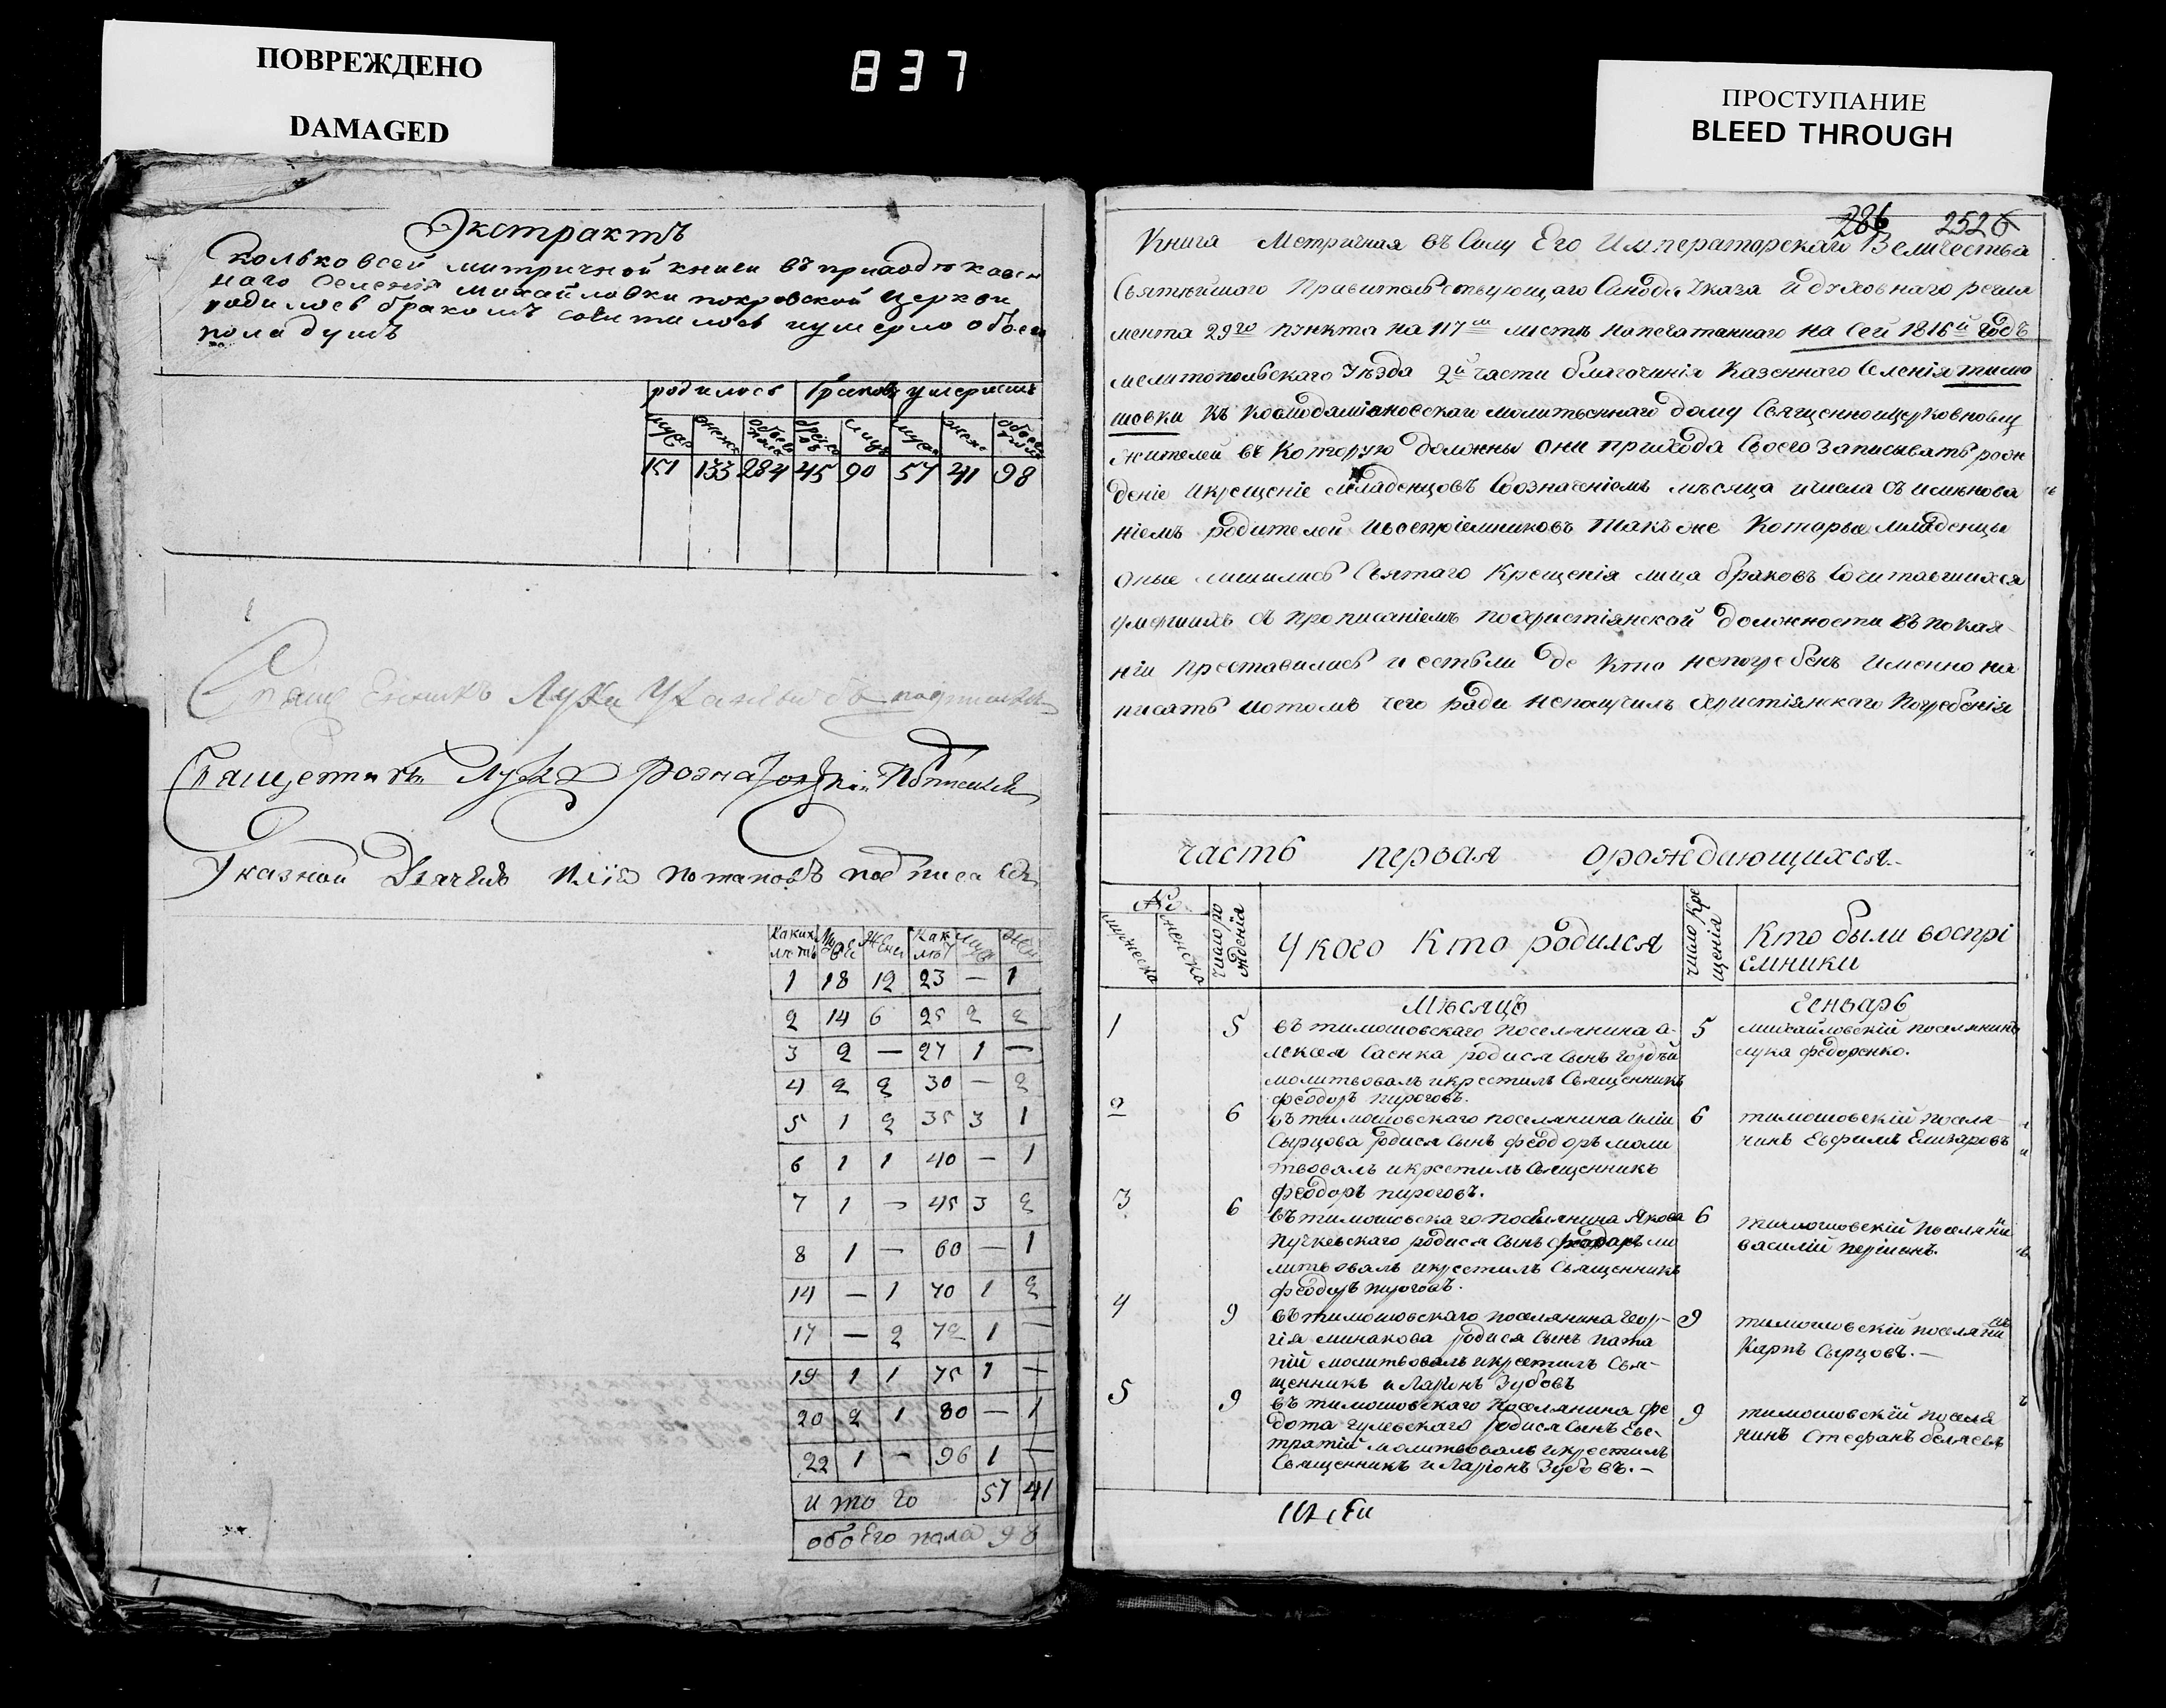 ПОВРЕЖДЕНО
DAMAGED
837
ПРОСТУПАНИЕ
BLEED THROUGH
Экстрактъ
Сколько всей митричной книги въ приходѣ казен
наго Селенія михайловки покровской церкви
родилось бракомъ сочиталось иумерло обоего
пола душъ
родилось браковъ умершихъ
муж женс обоего пола браковъ лицъ муж женс обоего пола
151 133 284 45 90 57 41 98
Священникъ Лука
Священникъ Лука
Указной Дячекъ Илїя потаповъ подписался
Какихъ лѣтъ Муж Жен Как лѣт муж жен
1 18 12 23 — 1
2 14 6 25 2 2
3 2 — 27 1 —
4 2 2 30 — 2
5 1 2 35 3 1
6 1 1 40 — 1
7 1 — 45 3 2
8 1 — 60 — 1
14 — 1 70 1 2
17 — 2 72 1 —
19 1 1 75 1 —
20 2 1 80 — 1
22 1 — 96 1 —
итого 57 41
обоего пола 98
286 2526
Книга Метричная въ Силу Его Императорскаго Величества
Святѣйшаго Правительствующаго Синода Указа И духовнаго регла
мента 29го пункта на 117м листѣ напечатаннаго на Сей 1816й годъ
мелитопольскаго Уѣзда 2й части благочинія Казеннаго Селенія тимо
шовки къ Космодаміановскаго молитвеннаго дому Священноицерковнослу
жителей въ Которую должны они прихода Своего Записывать рож
деніе Икрещеніе младенцовъ Созначеніемъ мѣсяца ичисла съ имянова
ніемъ родителей ивоспріемниковъ такъ же Которые младенцы
оные лишились Святаго Крещенія лица браковъ Сочитавшихся
умершихъ съ прописаніемъ похристіянской должности въ покая
ніи преставились и естьли де кто непогребенъ Именно на
писать ипотомъ чего ради неполучилъ христіянскаго Погребенія
часть первая орождающихся
№
мужеска женска число рождения У кого Кто родился число Крещенія Кто были воспрі
емники
Мѣсяцъ Генварь
1 5 въ тимошовскаго поселянина а- 5 михайловскій поселянинъ
лексея Саенка родися Сынъ гордѣй лука федоренко.
молитвовалъ икрестилъ Священникъ
феодоръ пироговъ.
2 6 въ тимошовскаго поселянина Иліи 6 тимошовскій поселя-
Сырцова родися Сынъ феодоръ моли нинъ Евфимъ Елизаровъ
твовалъ икрестилъ Священникъ
феодоръ пироговъ.
3 6 въ тимошовскаго поселянина Якова 6 тимошовскій поселянинъ
Пучкевскаго родися Сынъ феодоръ мо василій
литвовалъ икрестилъ Священникъ
феодоръ пироговъ.
4 9 въ тимошовскаго поселянина Геор- 9 тимошовскій поселянинъ
гія минакова родися Сынъ пата Карпъ Сырцовъ.—
пій молитвовалъ икрестилъ Свя-
щенникъ иларіонъ Зубовъ
5 9 въ тимошовскаго поселянина фе 9 тимошовскій поселя
дота гулевскаго родися Сынъ Евс- нинъ Стефанъ беляевъ
тратій молитвовалъ икрестилъ
Священникъ иларіонъ Зубовъ.—